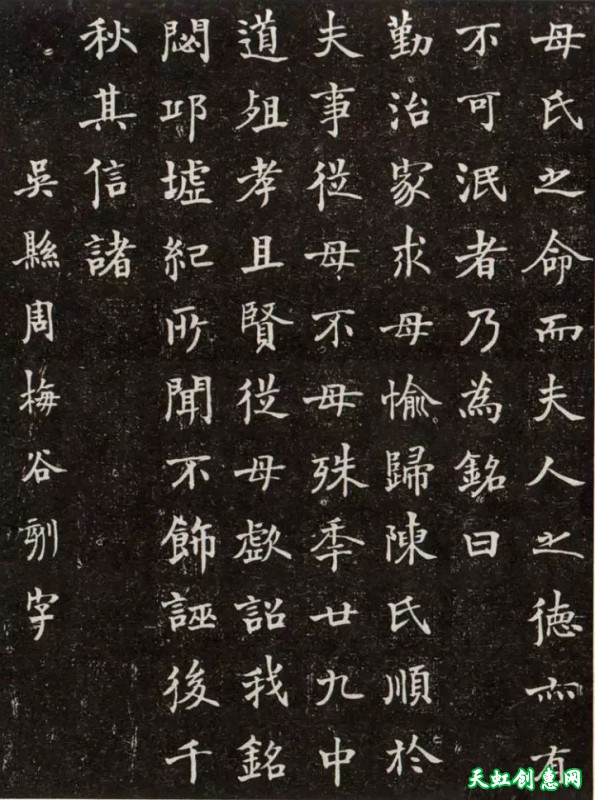 母氏之命而夫人之德亦有
不可泯者乃為銘曰
勤治家求母愉歸陳氏順於
夫事從母不母殊季廿九中
道殂孝且賢從母歔詔我銘
閟邛墟紀所聞不飾誣後千
秋其信諸
吳縣周梅谷刻字
天虹创意网